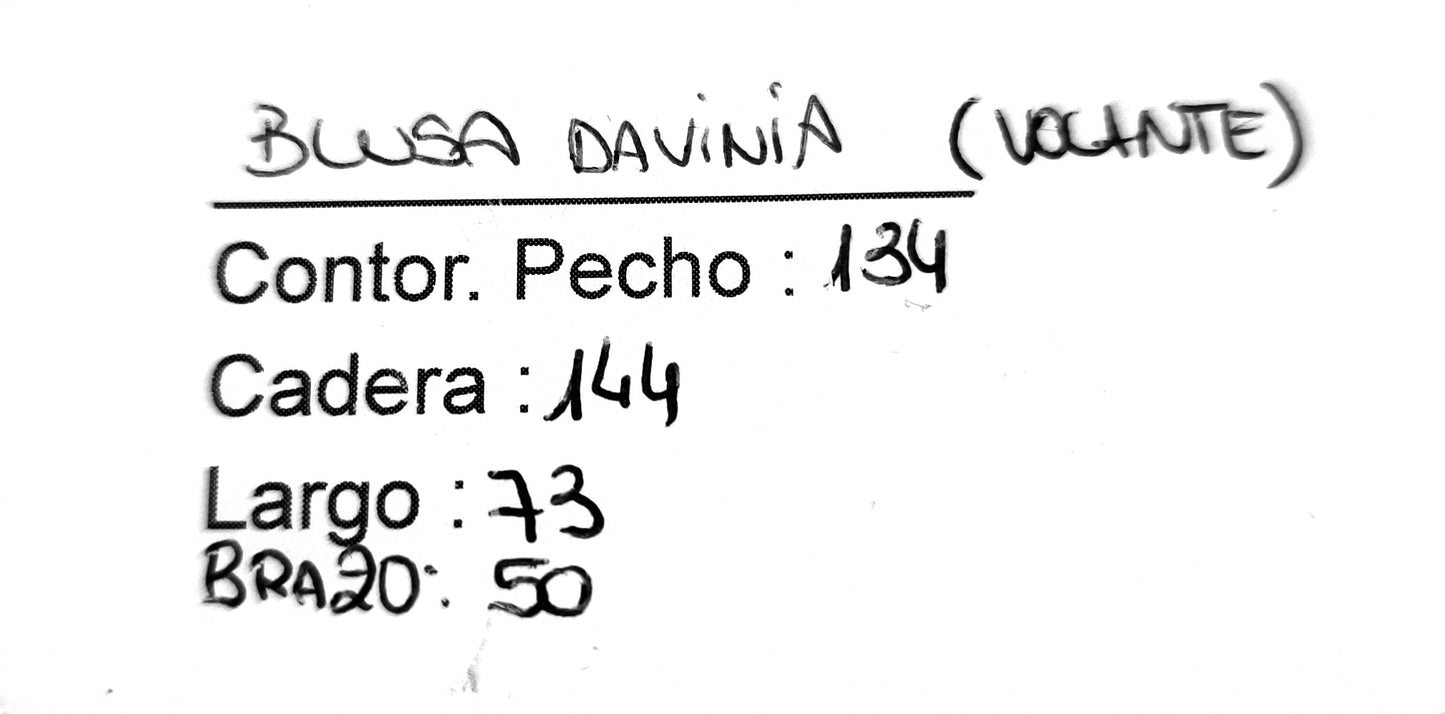 BLUSA DAViNiA (VOLANTE)
Contor. Pecho : 134
Cadera : 144
Largo : 73
BRAZO: 50